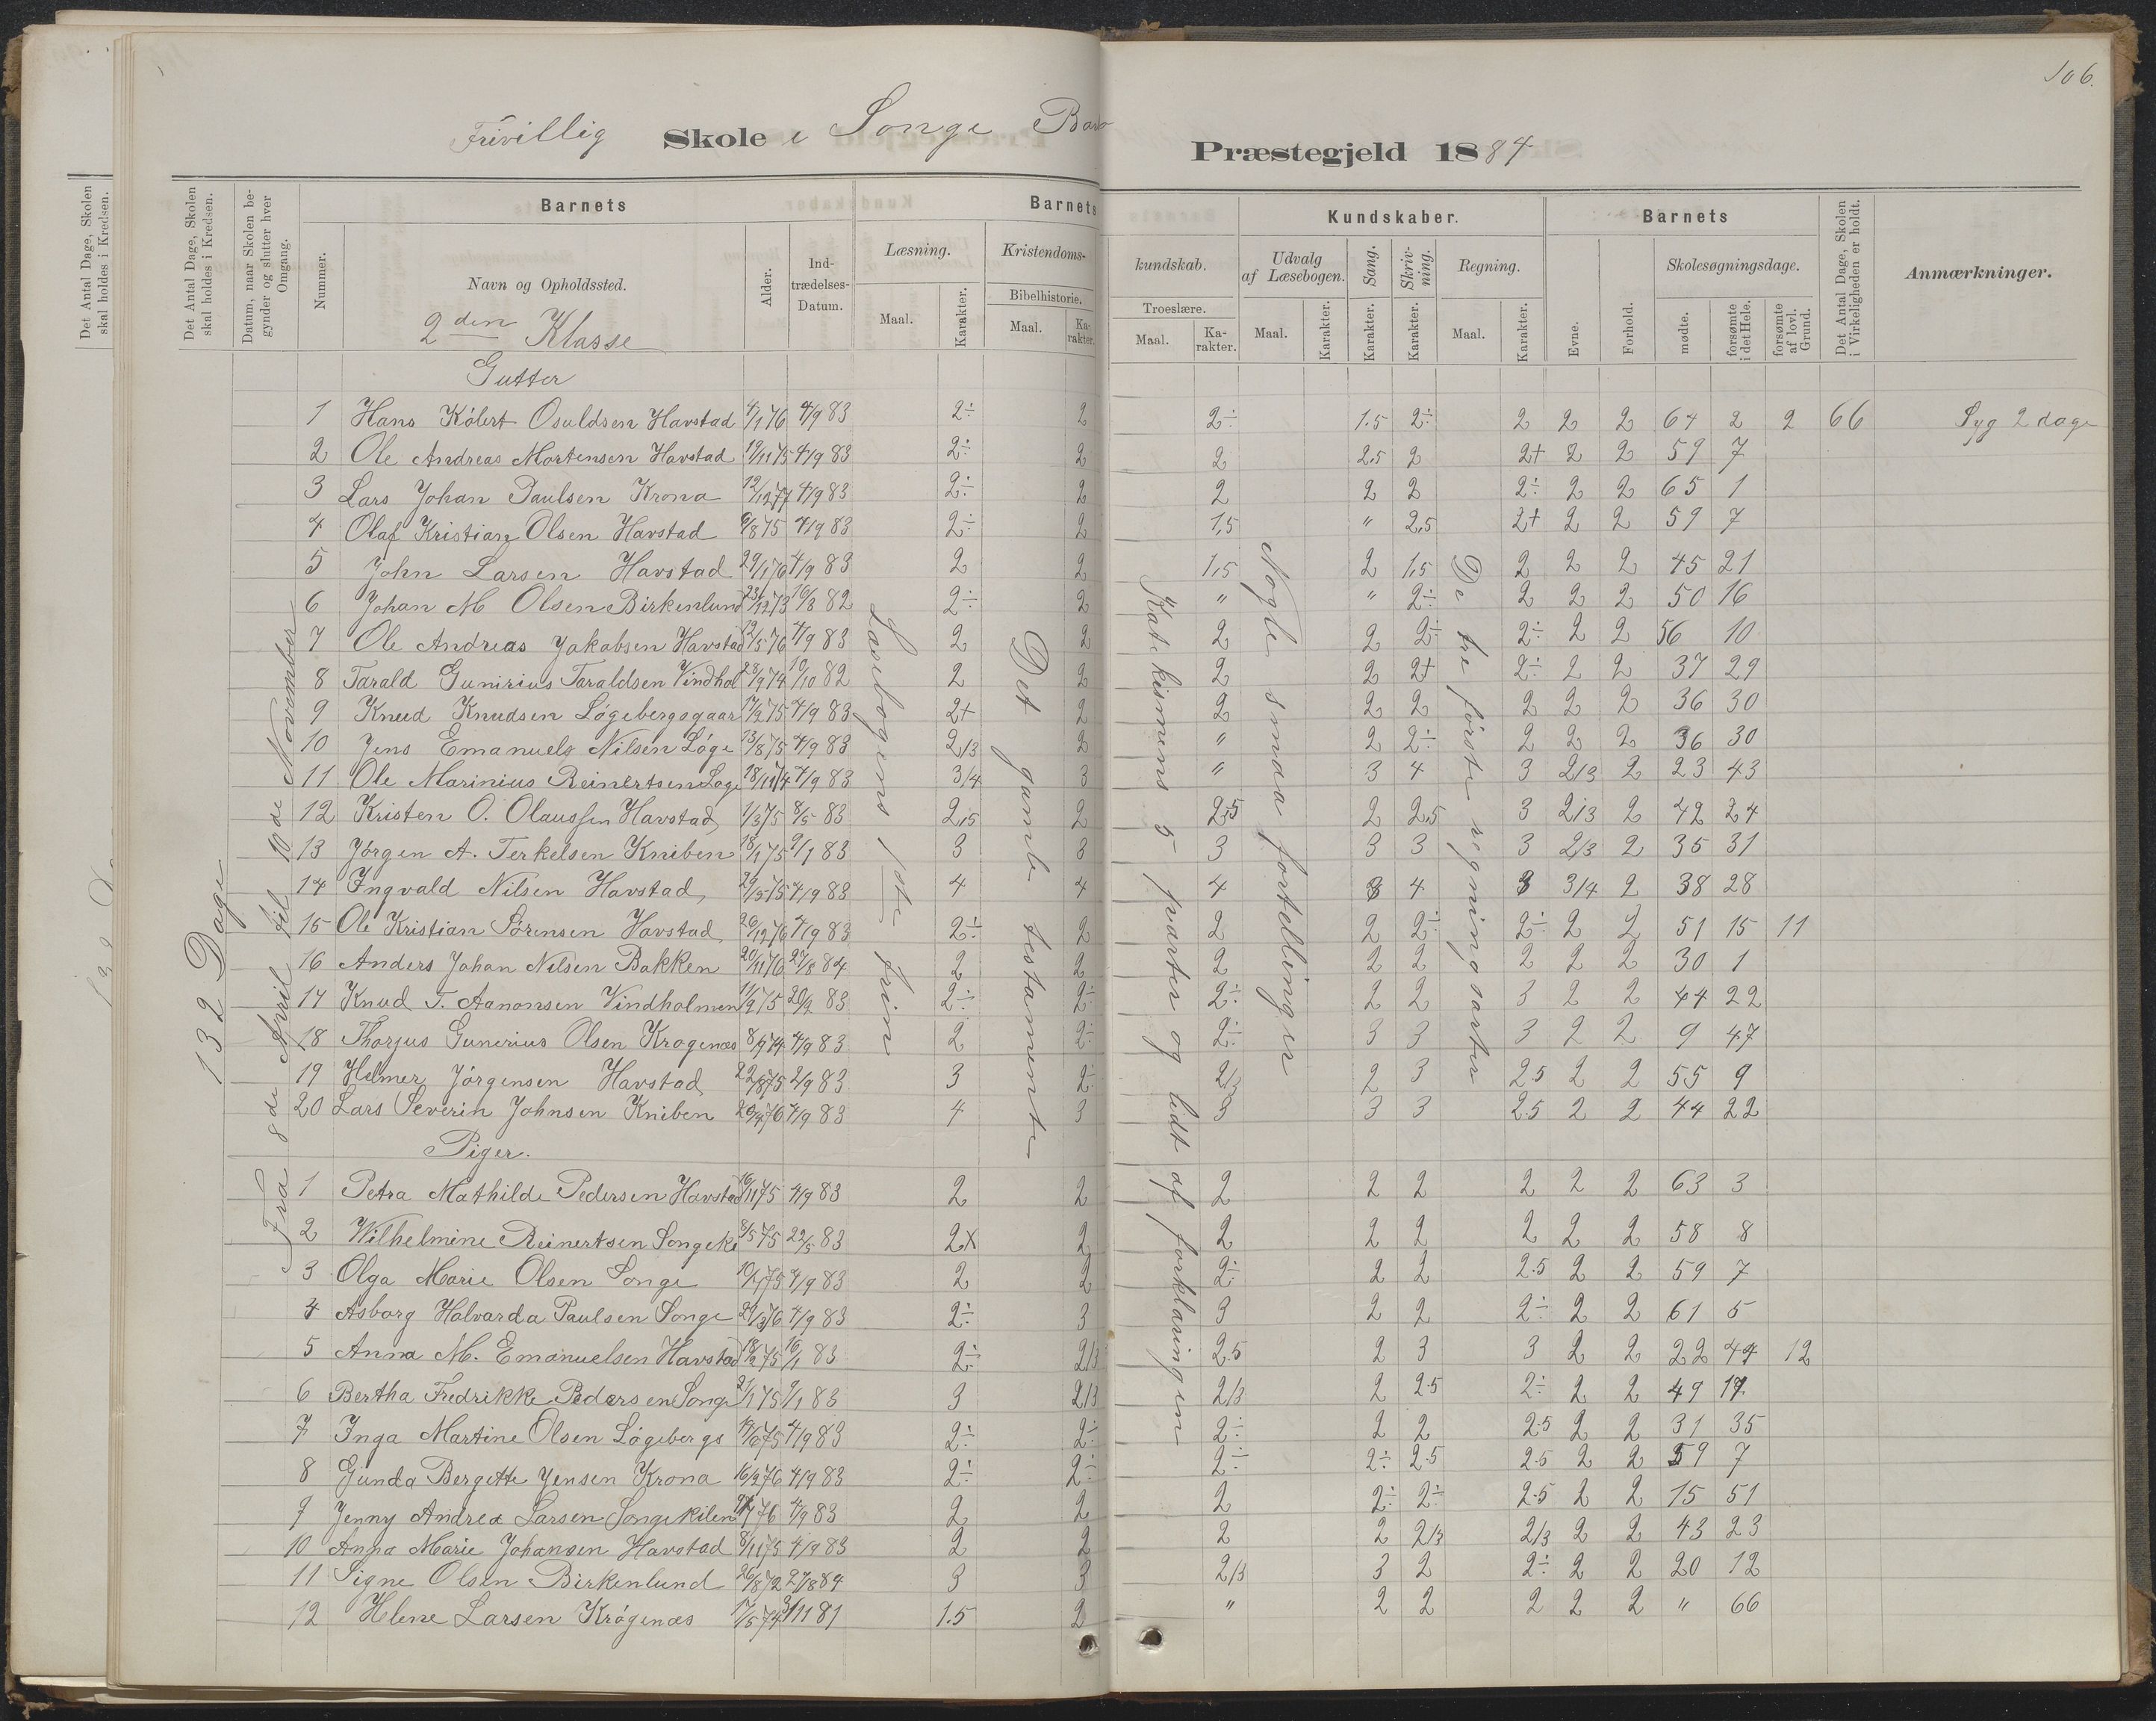 106.
Frivillig Skole i Songe Præstegjeld 1884
Det Antal Dage, Skolen skal holdes i Kredsen.
Det Antal Dage, Skolen skal holdes i Kredsen.
Datum, naar Skolen begynder og slutter hver Omgang.
Barnets
Nummer.
Navn og Opholdssted.
Alder.
Indtrædelses-Datum.
Barnets Kundskaber.
Læsning.
Maal.
Karakter.
Kristendoms-kundskab.
Bibelhistorie.
Maal.
Karakter.
Troeslære.
Maal.
Karakter.
Udvalg af Læsebogen.
Maal.
Karakter.
Sang.
Karakter.
Skrivning.
Karakter.
Regning.
Maal.
Karakter.
Barnets
Evne.
Forhold.
Skolesøgningsdage.
mødte.
forsømte i det Hele.
forsømte af lovl. Grund.
Det Antal Dage, Skolen i Virkeligheden er holdt.
Anmærkninger.
132 Dage
Fra 8de April til 10de November
Læsebogens 1ste trin
Det gamle testamente
Katekismens 5 parter og lidt af forklaringen
Nogle smaa fortellinger
De tre første regningsarter
2den Klasse
Gutter
1 Hans Kólert Osuldsen Havstad 4/1 76 4/9 83 2÷ 2 2÷ 1.5 2÷ 2 2 2 64 2 2 66 Syg 2 dage
2 Ole Andreas Mortensen Havstad 19/11 75 4/9 83 2÷ 2 2 2.5 2 2+ 2 2 59 7
3 Lars Johan Paulsen Krona 12/12 77 4/9 83 2÷ 2 2 2 2 2÷ 2 2 65 1
4 Olaf Kristian Olsen Havstad 6/8 75 4/9 83 2÷ 2 1,5 " 2,5 2+ 2 2 59 7
5 John Larsen Havstad 29/1 76 4/9 83 2 2 1,5 2 1,5 2 2 2 45 21
6 Johan M Olsen Birkenlund 23/12 73 16/3 82 2÷ 2 " " 2÷ 2 2 2 50 16
7 Ole Andreas Jakobsen Havstad 12/5 76 4/9 83 2 2 2 2 2÷ 2÷ 2 2 56 10
8 Tarald Gunirius Taraldsen Vindhol 28/9 74 10/10 82 2 2 2 2 2+ 2÷ 2 2 37 29
9 Knud Knudsen Lógebergsgaar 17/2 75 4/9 83 2+ 2 2 2 2 2 2 2 36 30
10 Jens Emanuels Nilsen Lóge 13/8 75 4/9 83 2/3 2 " 2 2÷ 2 2 2 36 30
11 Ole Marinius Reinertsen Loge 18/11 74 4/9 83 3/4 3 " 3 4 3 2/3 2 23 43
12 Kristen O. Olaussen Havstad 1/3 75 8/5 83 2,5 2 2,5 2 2,5 3 2/3 2 42 24
13 Jórgen A. Terkelsen Kniben 18/1 75 9/1 83 3 3 3 3 3 3 2/3 2 35 31
14 Ingvald Nilsen Havstad 4/9 83 4 4 4 3 4 3 3/4 2 38 28
15 Ole Kristian Sórensen Havstad 26/12 76 4/9 83 2÷ 2 2 2 2÷ 2÷ 2 2 51 15 11
16 Anders Johan Nilsen Bakken 20/11 76 27/8 84 2 2 2 2 2 2 2 2 30 1
17 Knud T. Aanonsen Vindholmen 11/9 75 20/2 83 2÷ 2÷ 2÷ 2 2 3 2 2 44 22
18 Thorjus Gunerius Olsen Krogenæs 8/9 74 4/9 83 2 2÷ 2÷ 3 3 3 2 2 9 47
19 Helmer Jórgensen Havstad 22/8 75 2/9 83 3 2÷ 2/3 2 3 2.5 2 2 55 9
20 Lars Severin Johnsen Kniben 20/4 76 4/9 83 4 3 3 3 3 2.5 2 2 44 22
Piger.
1 Petra Mathilde Pedersen Havstad 16/11 75 4/9 83 2 2 2 2 2 2 2 2 63 3
2 Wilhelmine Reinertsen Songeki 8/5 75 22/5 83 2x 2 2 2 2 2 2 2 58 8
3 Olga Marie Olsen Songe 10/1 75 4/9 83 2 2 2÷ 2 2 2.5 2 2 59 7
4 Asborg Halvarda Paulsen Songe 24/3 76 4/9 83 2÷ 3 3 2 2 2÷ 2 2 61 5
5 Anna M. Emanuelsen Havstad 18/2 75 16/1 83 2÷ 2/3 2.5 2 3 3 2 2 22 44 12
6 Bertha Fredrikke Pedersen Songe 21/1 75 9/1 83 3 2/3 2/3 2 2.5 2÷ 2 2 49 17
7 Inga Martine Olsen Lógebergs 14/6 75 4/9 83 2÷ 2÷ 2÷ 2 2 2.5 2 2 31 35
8 Gunda Bergitte Jensen Krona 16/2 76 4/9 83 2÷ 2÷ 2÷ 2÷ 2.5 2.5 2 2 59 7
9 Jenny Andrea Larsen Songekilen 4/9 83 2 2 2 2÷ 2÷ 2.5 2 2 15 51
10 Anna Marie Johansen Havstad 8/11 75 4/9 83 2 2 2 2 2/3 2/3 2 2 43 23
11 Signe Olsen Birkenlund 26/8 72 27/8 84 3 3 2/3 3 2 2÷ 2 2 20 12
12 Helene Larsen Krógenæs 17/5 74 3/11 81 1.5 2 " 2 2 2 2 2 " 66